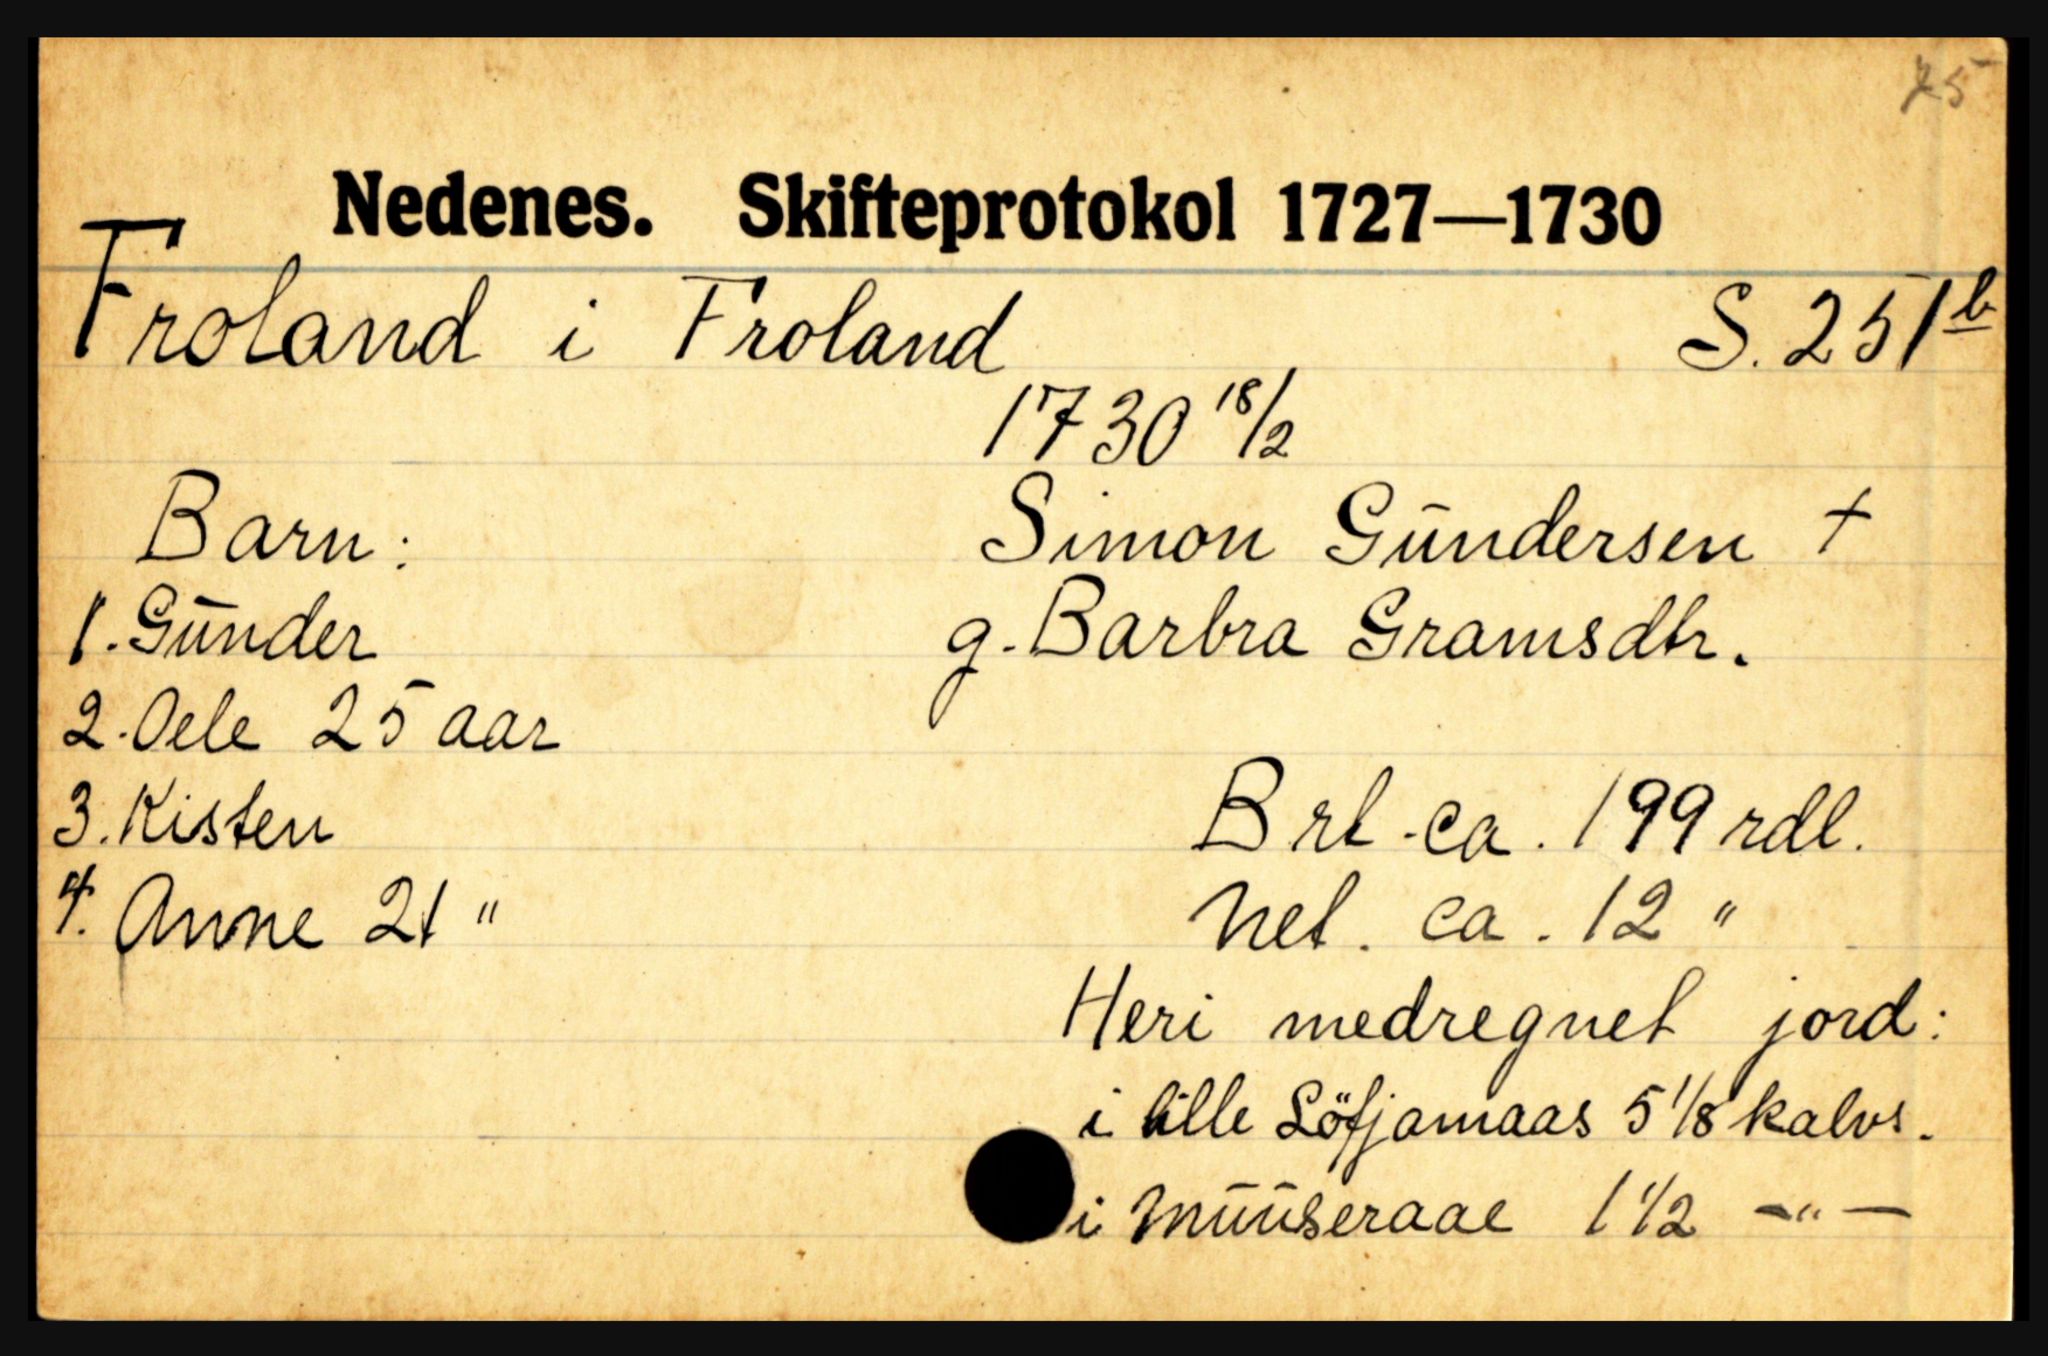 75
Nedenes. Skifteprotokol 1727—1730
Froland i Froland S. 251b
1730 18/2
Barn: Simon Gūndersen +
1. Gūnder g. Barbra Gramsdtr.
2. Oele 25 aar
3. Kisten Brt. ca. 199 rdl.
4. Anne 21 " Net. ca. 12 "
Heri medregnet jord:
i lille Löfjamaas 5 1/8 kalvs.
i Mūūseraae 1 1/2 —"—